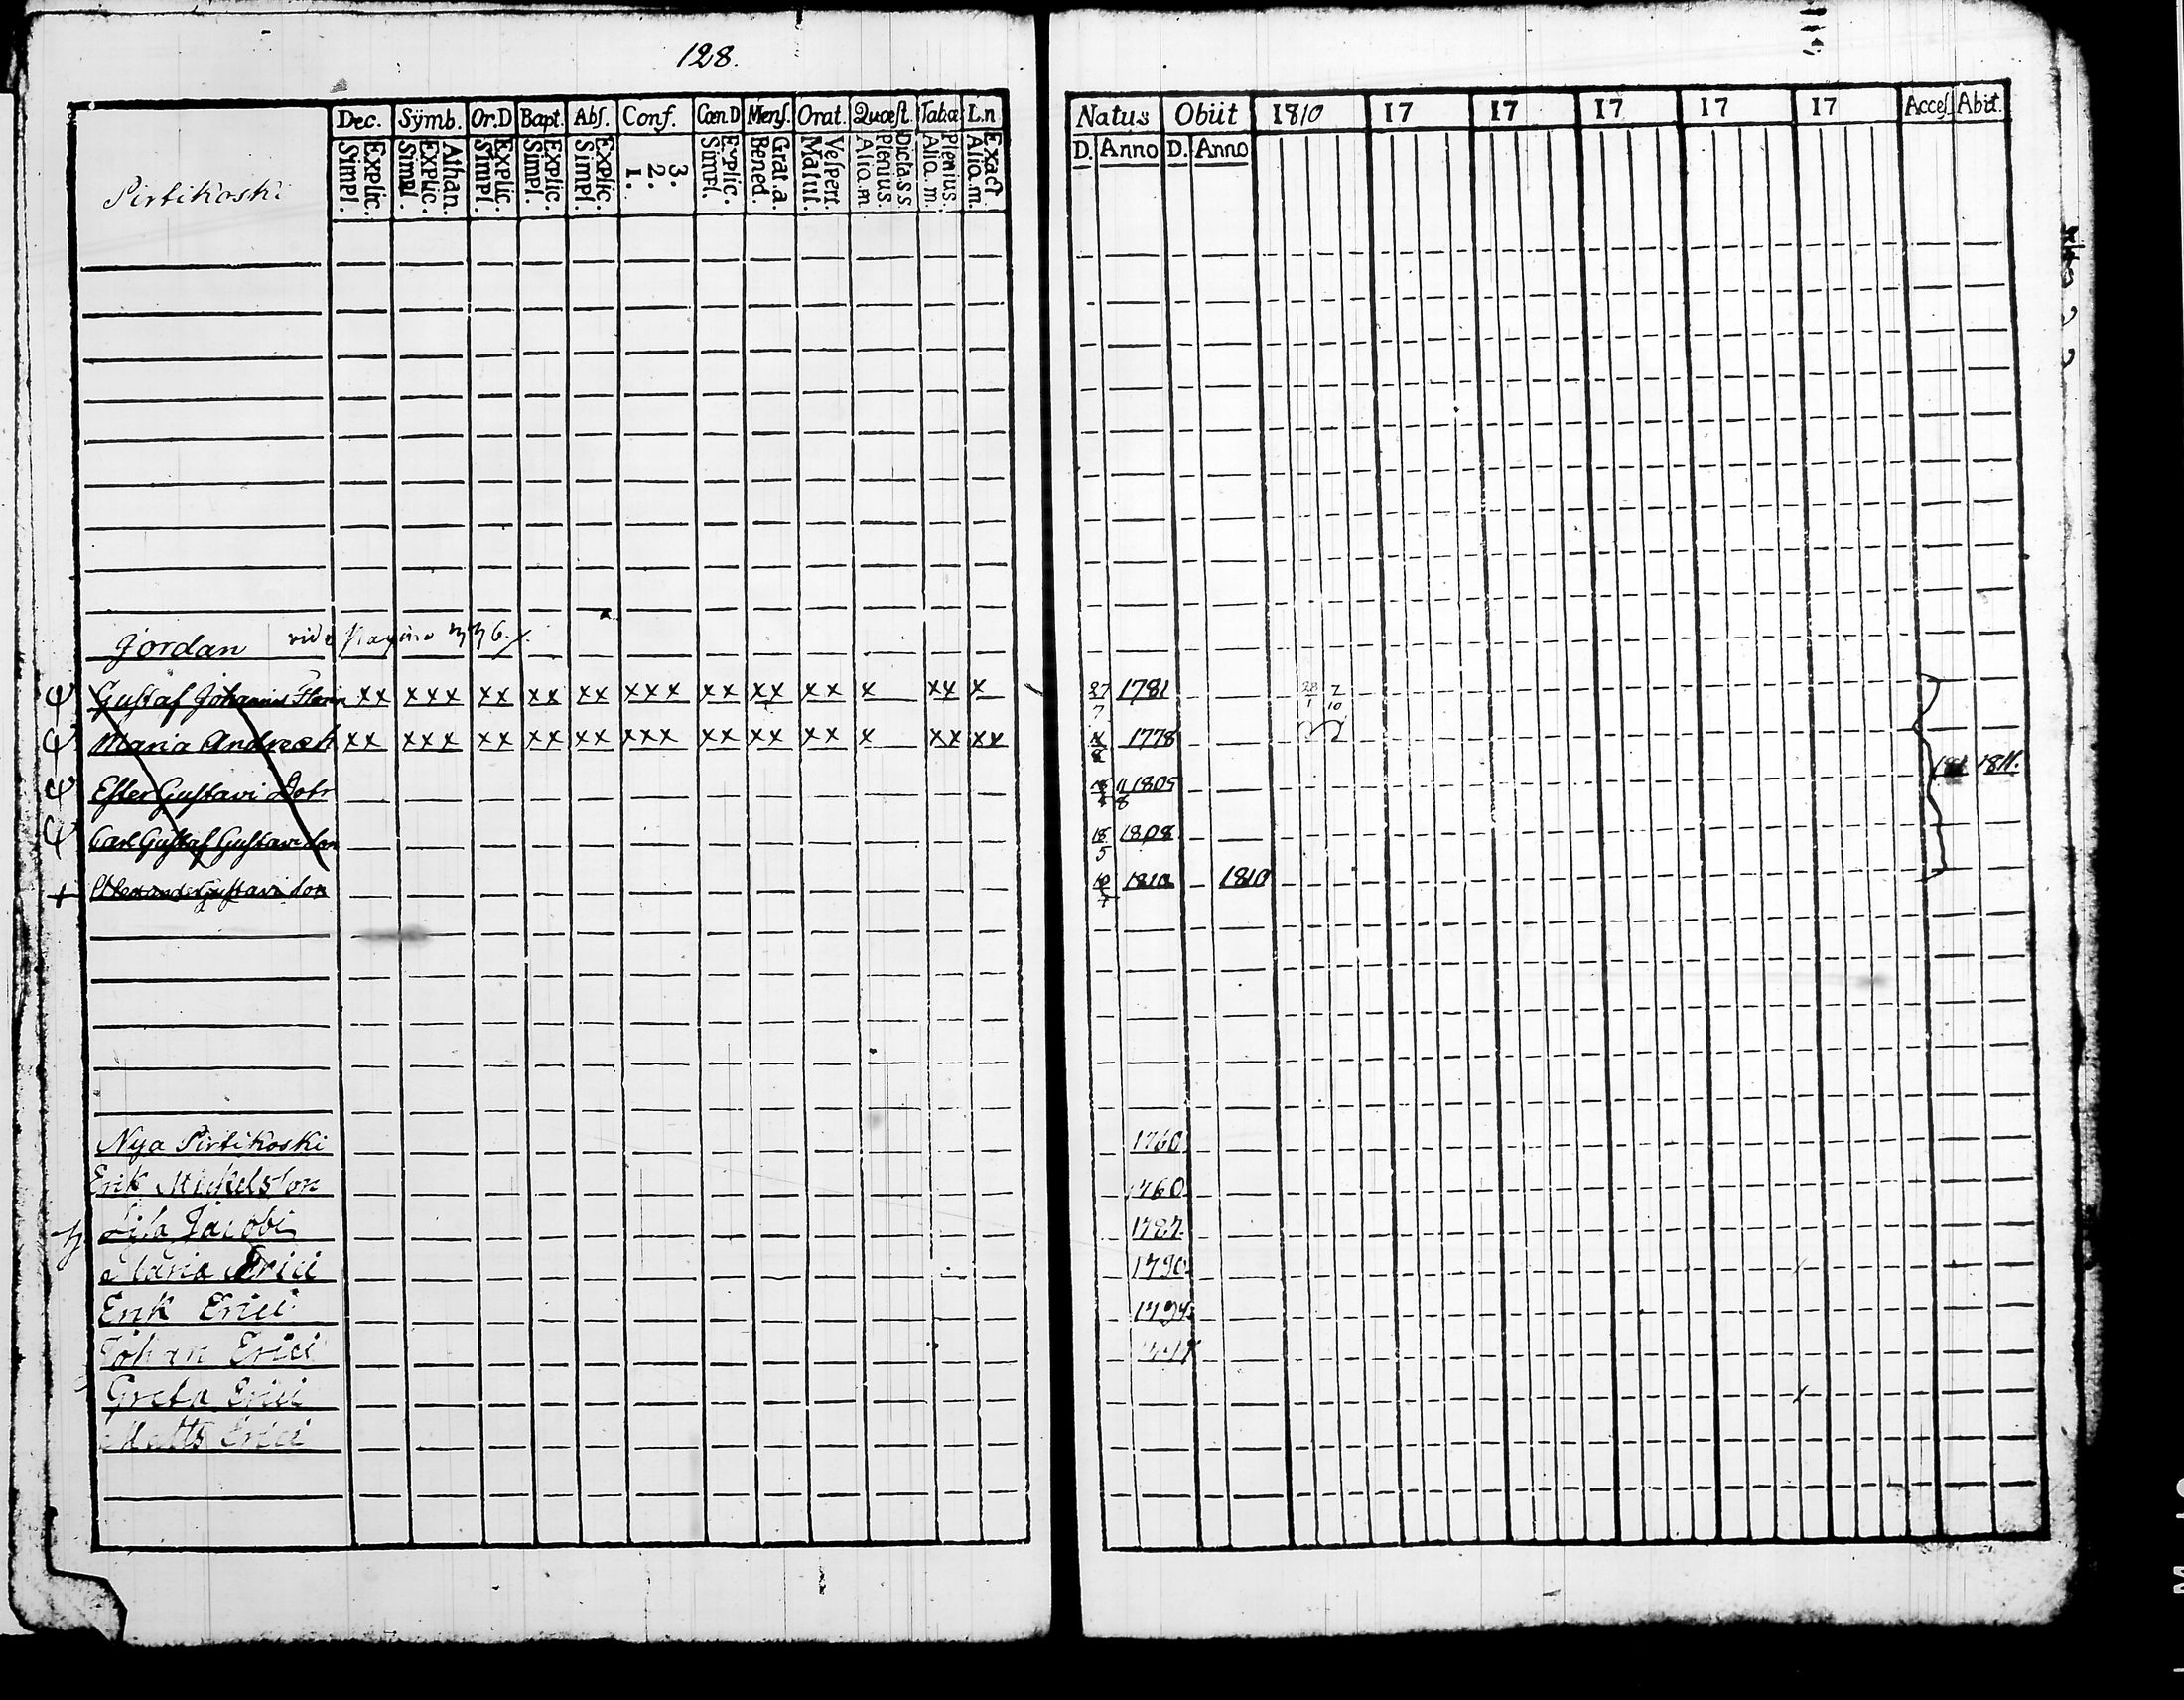 128.
Dec. Sÿmb. Or.D Bapt. Abſ. Conf. Cœn D Menſ. Orat. Quœſt. Tab.œ L.n
Simpl. Explic. Simpl. Explic. Athan. Simpl. Explic. Simpl. Explic. Simpl. Explic. 1. 2. 3. Simpl. Explic. Bened. Grat.a. Matut. Veſpert. Aliq.m Plenius. Dicta s s Aliq.m. Plenius. Aliq.m. Exact
Pirtikoski
Natus Obiit 1810 17 17 17 17 17 Acceſ. Abit.
D. Anno D. Anno
Jordan vide pagina
Gustaf Johannis xx xxx xx xx xx xxx xx xx xx x xx x 27/7 1781
Maria Andreæ xx xxx xx xx xx xxx xx xx xx x xx xx 1778
Ester Gustavi Dotr 1805 1811.
Carl Gustaf Gustavi son 18/5 1808
+ Alexander Gustavi son 1810 1810
Nya Pirtikoski 1760
Erik Mickelsson 1760
Lisa Jacobi 1787.
Maria Erici 1790
Erik Erici 1794
Johan Erici
Greta Erici
Matts Erici